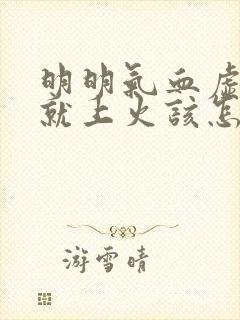 明明氣血虛
就上火該怎
游雪晴